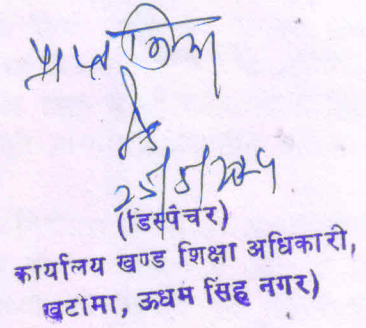 प्राप्त किया
(डिस्पैचर)
कार्यालय खण्ड शिक्षा अधिकारी,
खटीमा, ऊधम सिंह नगर)